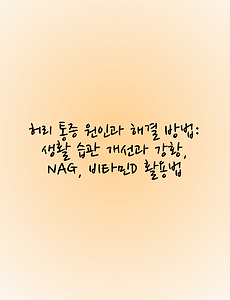 허리 통증 원인과 해결 방법:
생활 습관 개선과 강황,
NAG, 비타민D 활용법